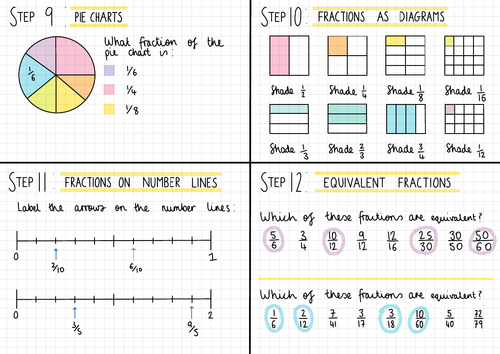 STEP 9 PIE CHARTS
What fraction of the
pie chart is:
1/6
1/6
1/4
1/8
STEP 10 FRACTIONS AS DIAGRAMS
Shade 1/2 Shade 1/4 Shade 1/8 Shade 1/16
Shade 1/3 Shade 2/3 Shade 3/4 Shade 1/12
STEP 11 FRACTIONS ON NUMBER LINES
Label the arrows on the number lines:
0 1
2/10 6/10
0 2
3/5 9/5
STEP 12 EQUIVALENT FRACTIONS
Which of these fractions are equivalent?
5/6 3/4 10/12 9/12 12/16 25/30 30/50 50/60
Which of these fractions are equivalent?
1/6 2/12 7/41 3/17 3/18 10/60 5/40 22/79